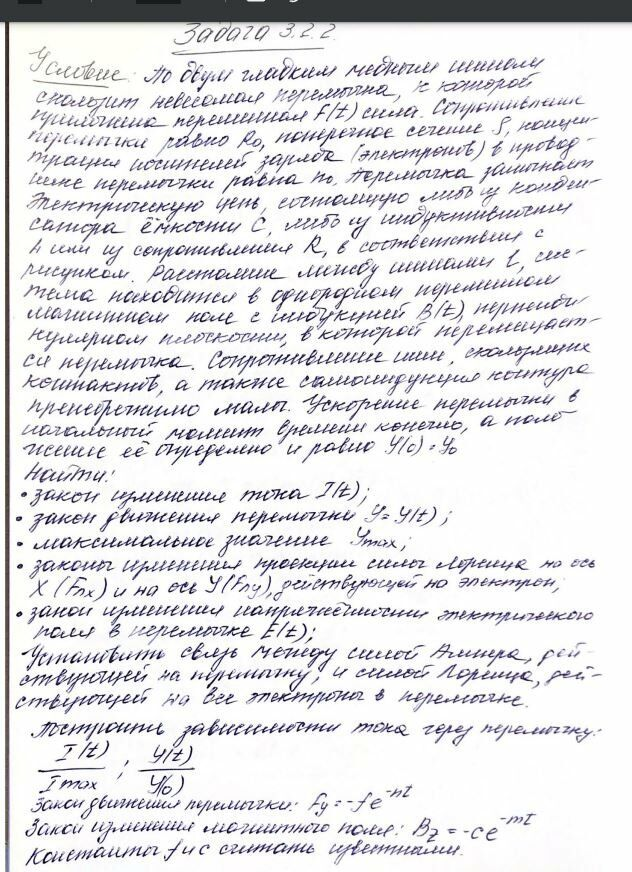 Задача 3.2.2.
Условие: По двум гладким медным шинам
скользит невесомая перемычка, к которой
приложена переменная F(t) сила. Сопротивление
перемычки равно R₀, поперечное сечение S, концен-
трация носителей заряда (электронов) в провод-
нике перемычки равна n₀. Перемычка замыкает
электрическую цепь, состоящую либо из конден-
сатора ёмкости C, либо из индуктивности
L или из сопротивления R, в соответствии с
рисунком. Расстояние между шинами l, сис-
тема находится в однородном переменном
магнитном поле с индукцией B(t), перпенди-
кулярном плоскости, в которой перемещает-
ся перемычка. Сопротивление шин, скользящих
контактов, а также самоиндукция контура
пренебрежимо малы. Ускорение перемычки в
начальный момент времени конечно, а поло
жение её определено и равно y(0)=y₀
Найти:
• закон изменения тока I(t);
• закон движения перемычки y=y(t);
• максимальное значение ymax;
• законы изменения проекции силы Лоренца на ось
X (Fлx) и на ось Y(Fлy), действующей на электрон;
• закон изменения напряжённости электрического
поля в перемычке E(t);
Установить связь между силой Ампера, дей-
ствующей на перемычку, и силой Лоренца, дей-
ствующей на все электроны в перемычке.
Построить зависимости тока через перемычку:
I(t)/Imax ; y(t)/y(0)
Закон движения перемычки: Fy=-fe^-nt
Закон изменения магнитного поля: Bz=-ce^-mt
Константы f и c считать известными.